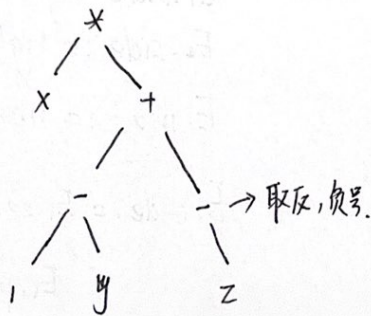 *
x +
- - → 取反,负号.
1 y z